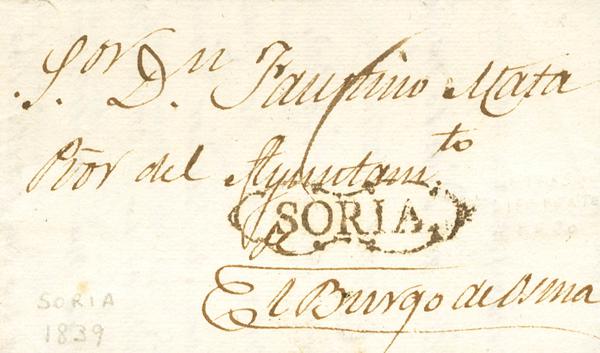 S.or D.n Faustino Mata
Ptor del Ayuntam.to
SORIA
de
El Burgo de Osma
SORIA
1839